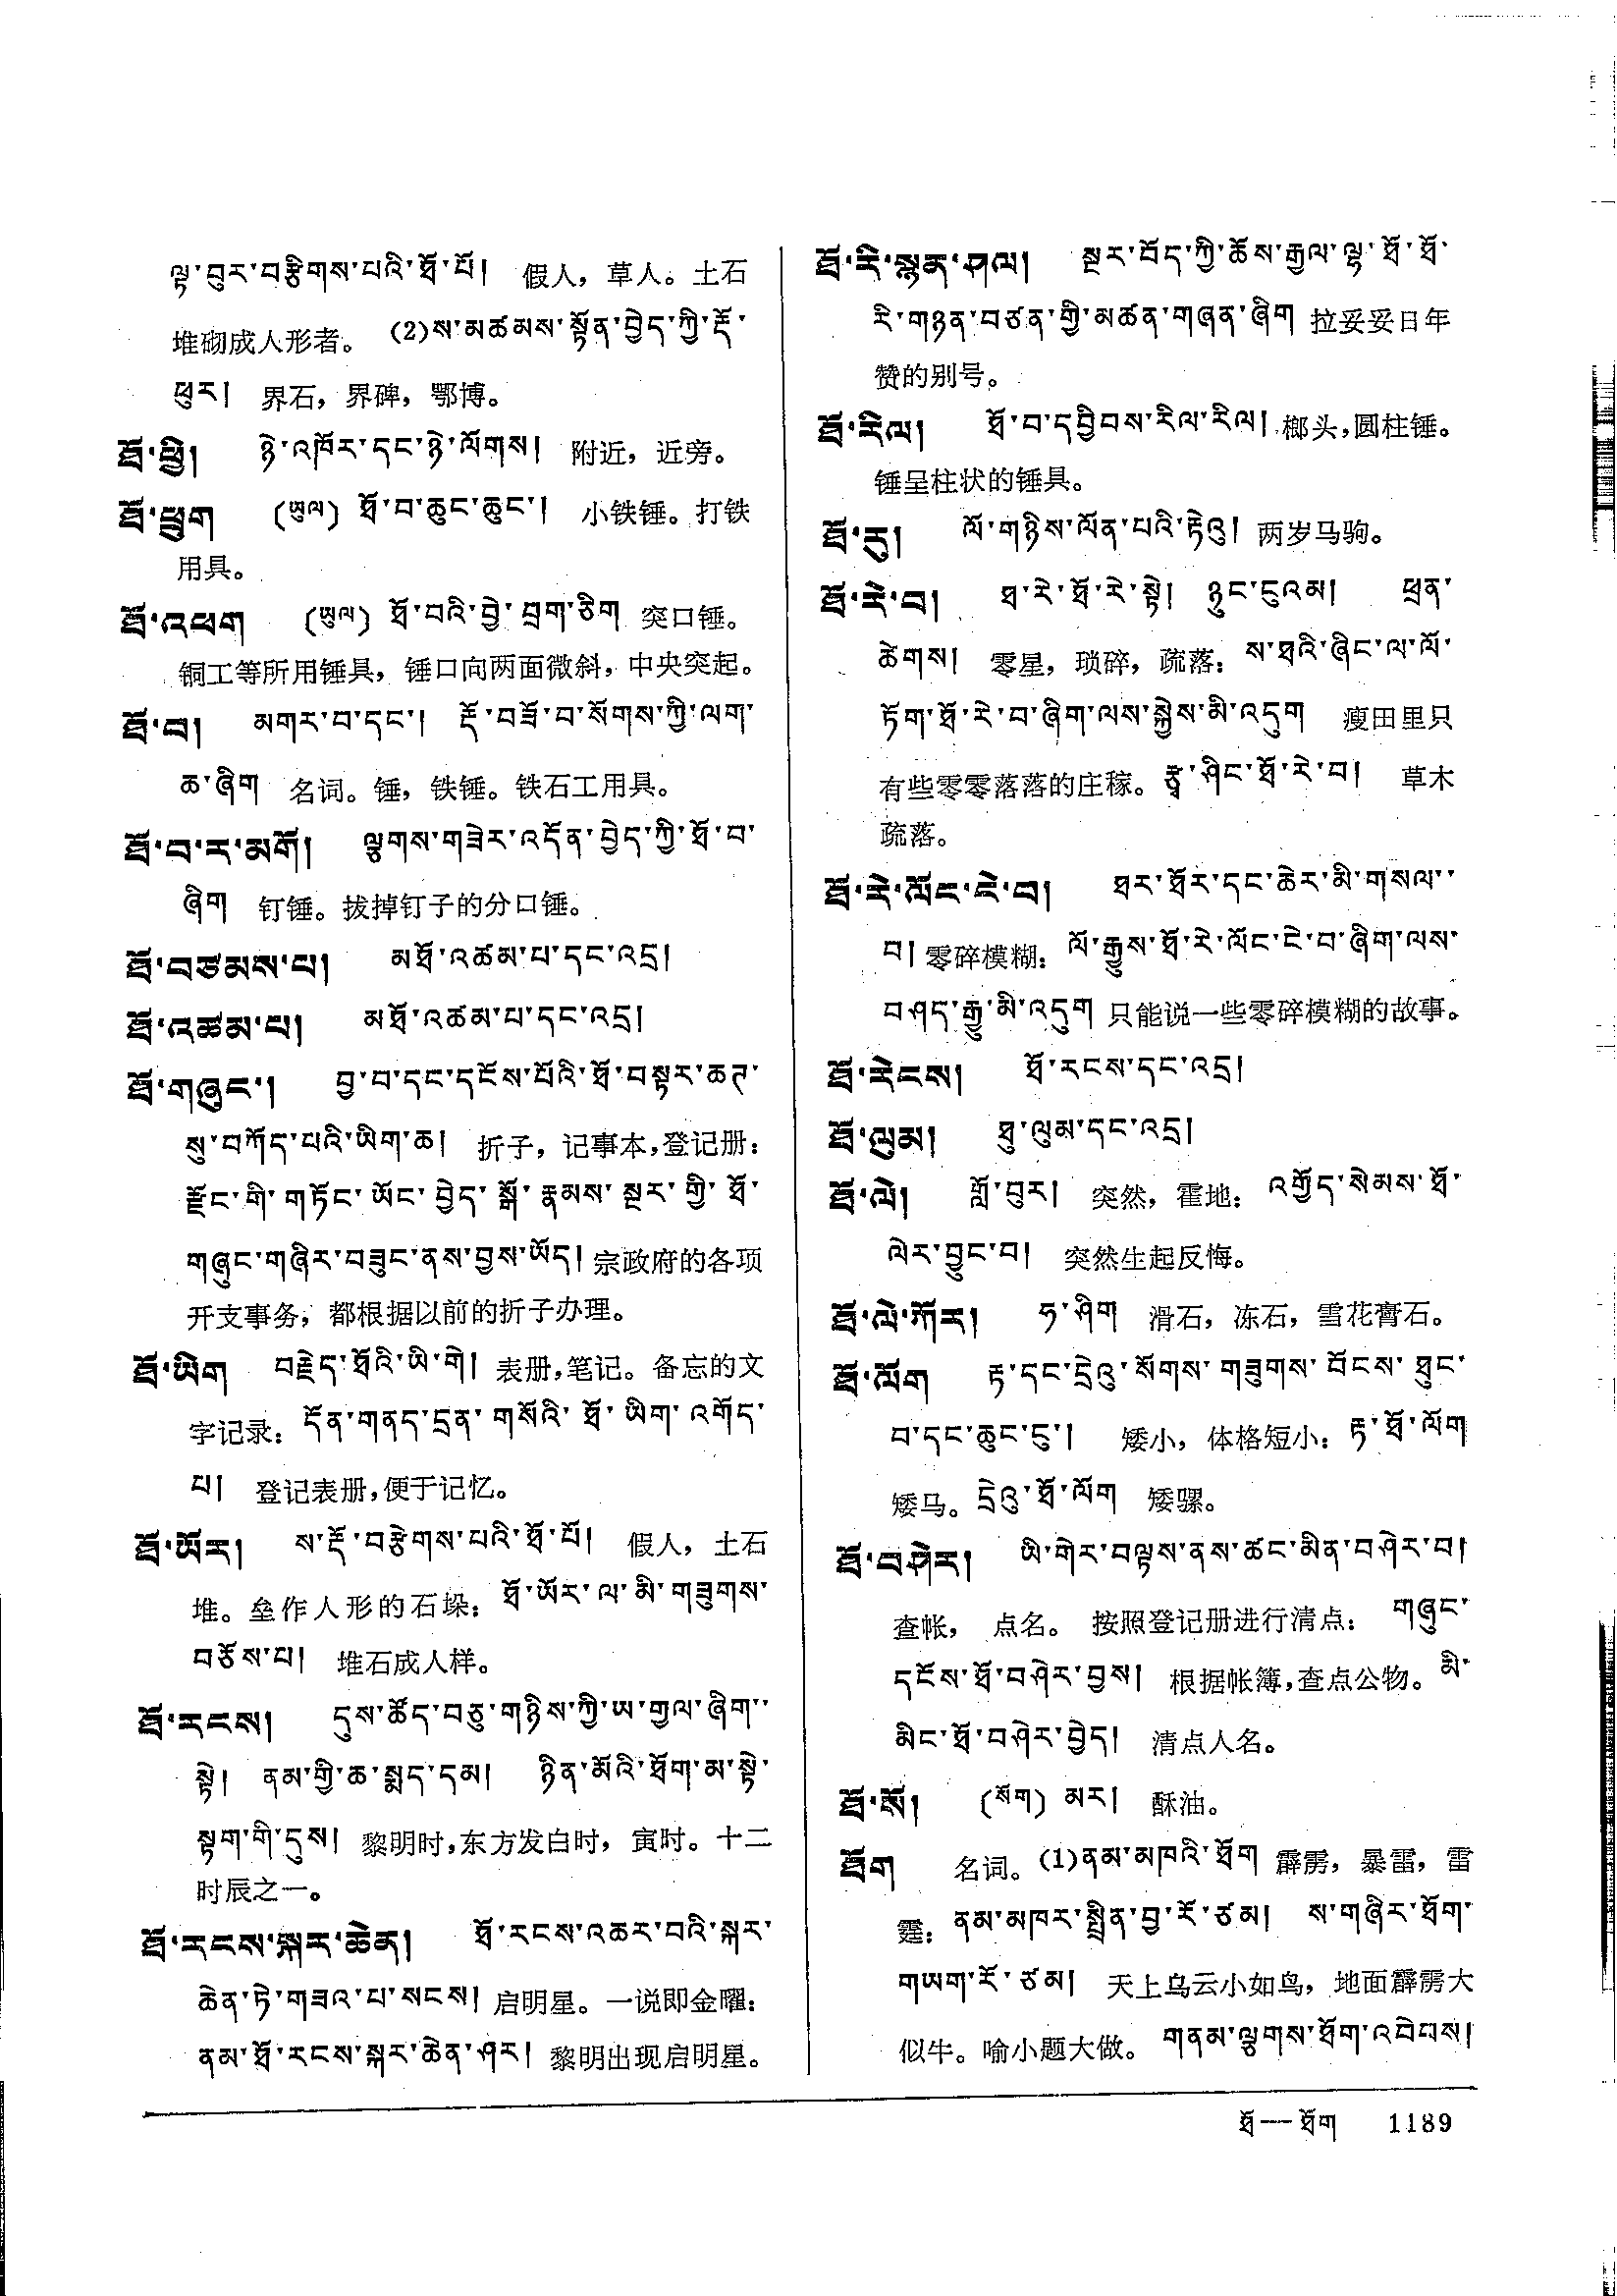 ལྟ་བུར་བརྩིགས་པའི་ཐོ་པོ། 假人，草人。土石
堆砌成人形者。 (2)ས་མཚམས་སྟོན་བྱེད་ཀྱི་རྡོ་
ཕུར། 界石，界碑，鄂博。
ཐོ་ཕྱི། ཉེ་འཁོར་དང་ཉེ་ལོགས། 附近，近旁。
ཐོ་ཕྲུག (ཡུལ) ཐོ་བ་ཆུང་ཆུང་། 小铁锤。打铁
用具。
ཐོ་འཕག (ཡུལ) ཐོ་བའི་བྱེ་བྲག་ཅིག 突口锤。
铜工等所用锤具，锤口向两面微斜，中央突起。
ཐོ་བ། མགར་བ་དང་། རྡོ་བཟོ་བ་སོགས་ཀྱི་ལག་
ཆ་ཞིག 名词。锤，铁锤。铁石工用具。
ཐོ་བ་ར་མགོ། ལྕགས་གཟེར་འདོན་བྱེད་ཀྱི་ཐོ་བ་
ཞིག 钉锤。拔掉钉子的分口锤。
ཐོ་བཙམས་པ། མཐོ་འཚམ་པ་དང་འདྲ།
ཐོ་འཚམ་པ། མཐོ་འཚམ་པ་དང་འདྲ།
ཐོ་གཞུང་། བྱ་བ་དང་དངོས་པོའི་ཐོ་བསྟར་ཆག་
སུ་བཀོད་པའི་ཡིག་ཆ། 折子，记事本，登记册：
རྫོང་གི་གཏོང་ཡོང་བྱེད་སྒོ་རྣམས་སྔར་གྱི་ཐོ་
གཞུང་གཞིར་བཟུང་ནས་བྱས་ཡོད། 宗政府的各项
开支事务，都根据以前的折子办理。
ཐོ་ཡིག བརྗེད་ཐོའི་ཡི་གེ། 表册，笔记。备忘的文
字记录：དོན་གནད་དྲན་གསོའི་ཐོ་ཡིག་འགོད་
པ། 登记表册，便于记忆。
ཐོ་ཡོར། ས་རྡོ་བརྩེགས་པའི་ཐོ་པོ། 假人，土石
堆。垒作人形的石垛：ཐོ་ཡོར་ལ་མི་གཟུགས་
བཅོས་པ། 堆石成人样。
ཐོ་རངས། དུས་ཚོད་བཅུ་གཉིས་ཀྱི་ཡ་གྱལ་ཞིག་
སྟེ། ནམ་གྱི་ཆ་སྨད་དམ། ཉིན་མོའི་ཐོག་མ་སྟེ་
སྟག་གི་དུས། 黎明时，东方发白时，寅时。十二
时辰之一。
ཐོ་རངས་སྐར་ཆེན། ཐོ་རངས་འཆར་བའི་སྐར་
ཆེན་ཏེ་གཟའ་པ་སངས། 启明星。一说即金曜：
ནམ་ཐོ་རངས་སྐར་ཆེན་ཤར། 黎明出现启明星。
ཐོ་རི་སྙན་ཤལ། སྔར་བོད་ཀྱི་ཆོས་རྒྱལ་ལྷ་ཐོ་ཐོ་
རི་གཉན་བཙན་གྱི་མཚན་གཞན་ཞིག 拉妥妥日年
赞的别号。
ཐོ་རིལ། ཐོ་བ་དབྱིབས་རིལ་རིལ། 榔头，圆柱锤。
锤呈柱状的锤具。
ཐོ་རུ། ལོ་གཉིས་ལོན་པའི་རྟེའུ། 两岁马驹。
ཐོ་རེ་བ། ཐ་རེ་ཐོ་རེ་སྟེ། ཉུང་ངུའམ། ཕྲན་
ཚེགས། 零星，琐碎，疏落：ས་ཐའི་ཞིང་ལ་ལོ་
ཏོག་ཐོ་རེ་བ་ཞིག་ལས་སྐྱེས་མི་འདུག 瘦田里只
有些零零落落的庄稼。རྩྭ་ཤིང་ཐོ་རེ་བ། 草木
疏落。
ཐོ་རེ་ལོང་ངེ་བ། ཐར་ཐོར་དང་ཆེར་མི་གསལ་
བ། 零碎模糊：ལོ་རྒྱུས་ཐོ་རེ་ལོང་ངེ་བ་ཞིག་ལས་
བཤད་རྒྱུ་མི་འདུག 只能说一些零碎模糊的故事。
ཐོ་རེངས། ཐོ་རངས་དང་འདྲ།
ཐོ་ལུམ། ཐུ་ལུམ་དང་འདྲ།
ཐོ་ལེ། གློ་བུར། 突然，霍地：འགྱོད་སེམས་ཐོ་
ལེར་བྱུང་བ། 突然生起反悔。
ཐོ་ལེ་ཀོར། ཧ་ཤིག 滑石，冻石，雪花膏石。
ཐོ་ལོག རྟ་དང་དྲེའུ་སོགས་གཟུགས་བོངས་ཐུང་
བ་དང་ཆུང་ངུ་། 矮小，体格短小：རྟ་ཐོ་ལོག
矮马。དྲེའུ་ཐོ་ལོག 矮骡。
ཐོ་བཤེར། ཡི་གེར་བལྟས་ནས་ཚང་མིན་བཤེར་བ།
查帐， 点名。 按照登记册进行清点： གཞུང་
དངོས་ཐོ་བཤེར་བྱས། 根据帐簿，查点公物。མི་
མིང་ཐོ་བཤེར་བྱེད། 清点人名。
ཐོ་སོ། (སོག) མར། 酥油。
ཐོག 名词。(1)ནམ་མཁའི་ཐོག 霹雳，暴雷，雷
霆：ནམ་མཁར་སྤྲིན་བྱ་རོ་ཙམ། ས་གཞིར་ཐོག་
གཡག་རོ་ཙམ། 天上乌云小如鸟，地面霹雳大
似牛。喻小题大做。གནམ་ལྕགས་ཐོག་འབེབས།
ཐོ—ཐོག 1189